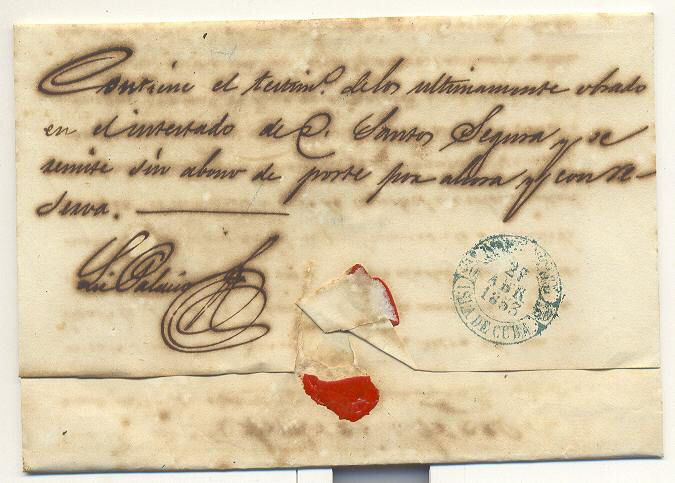 Contiene el testimº. de los ultimamente obrado
en el intestado de D. Santos Segura y se
remite sin abono de porte por ahora y con re-
serva.
Palacio
ABR
1853
ISLA DE CUBA